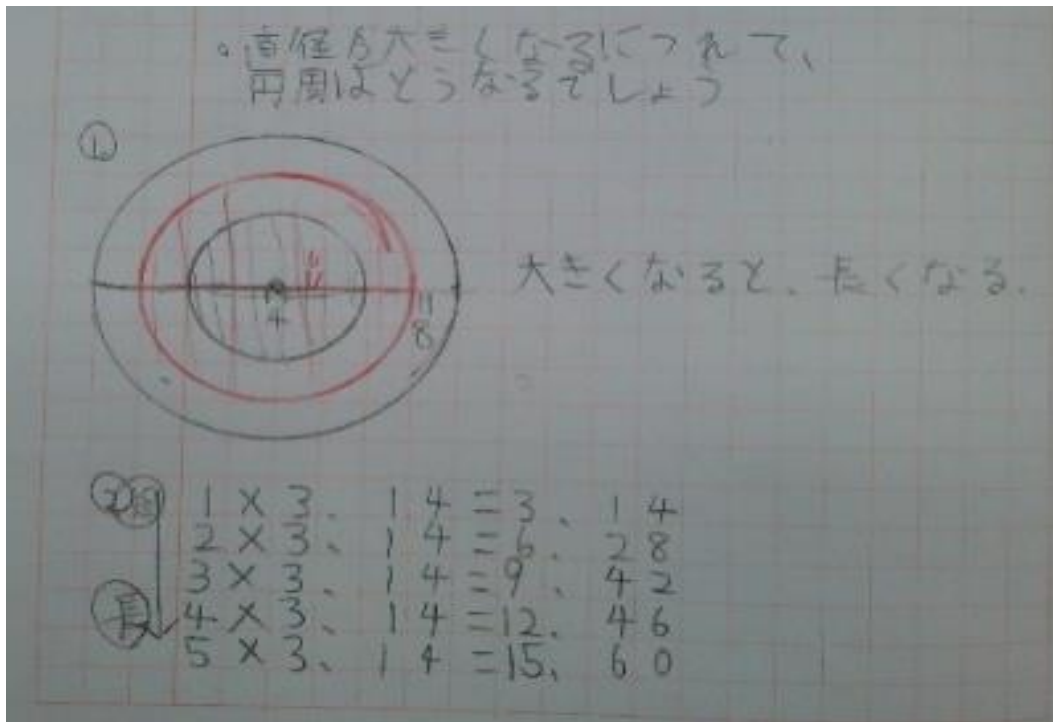 。直径が大きくなるにつれて、
円周はどうなるでしょう
①
大きくなると、長くなる.
4
8
② 1×3、14=3、14
2×3、14=6、28
3×3、14=9、42
長 4×3、14=12、46
5×3、14=15、60